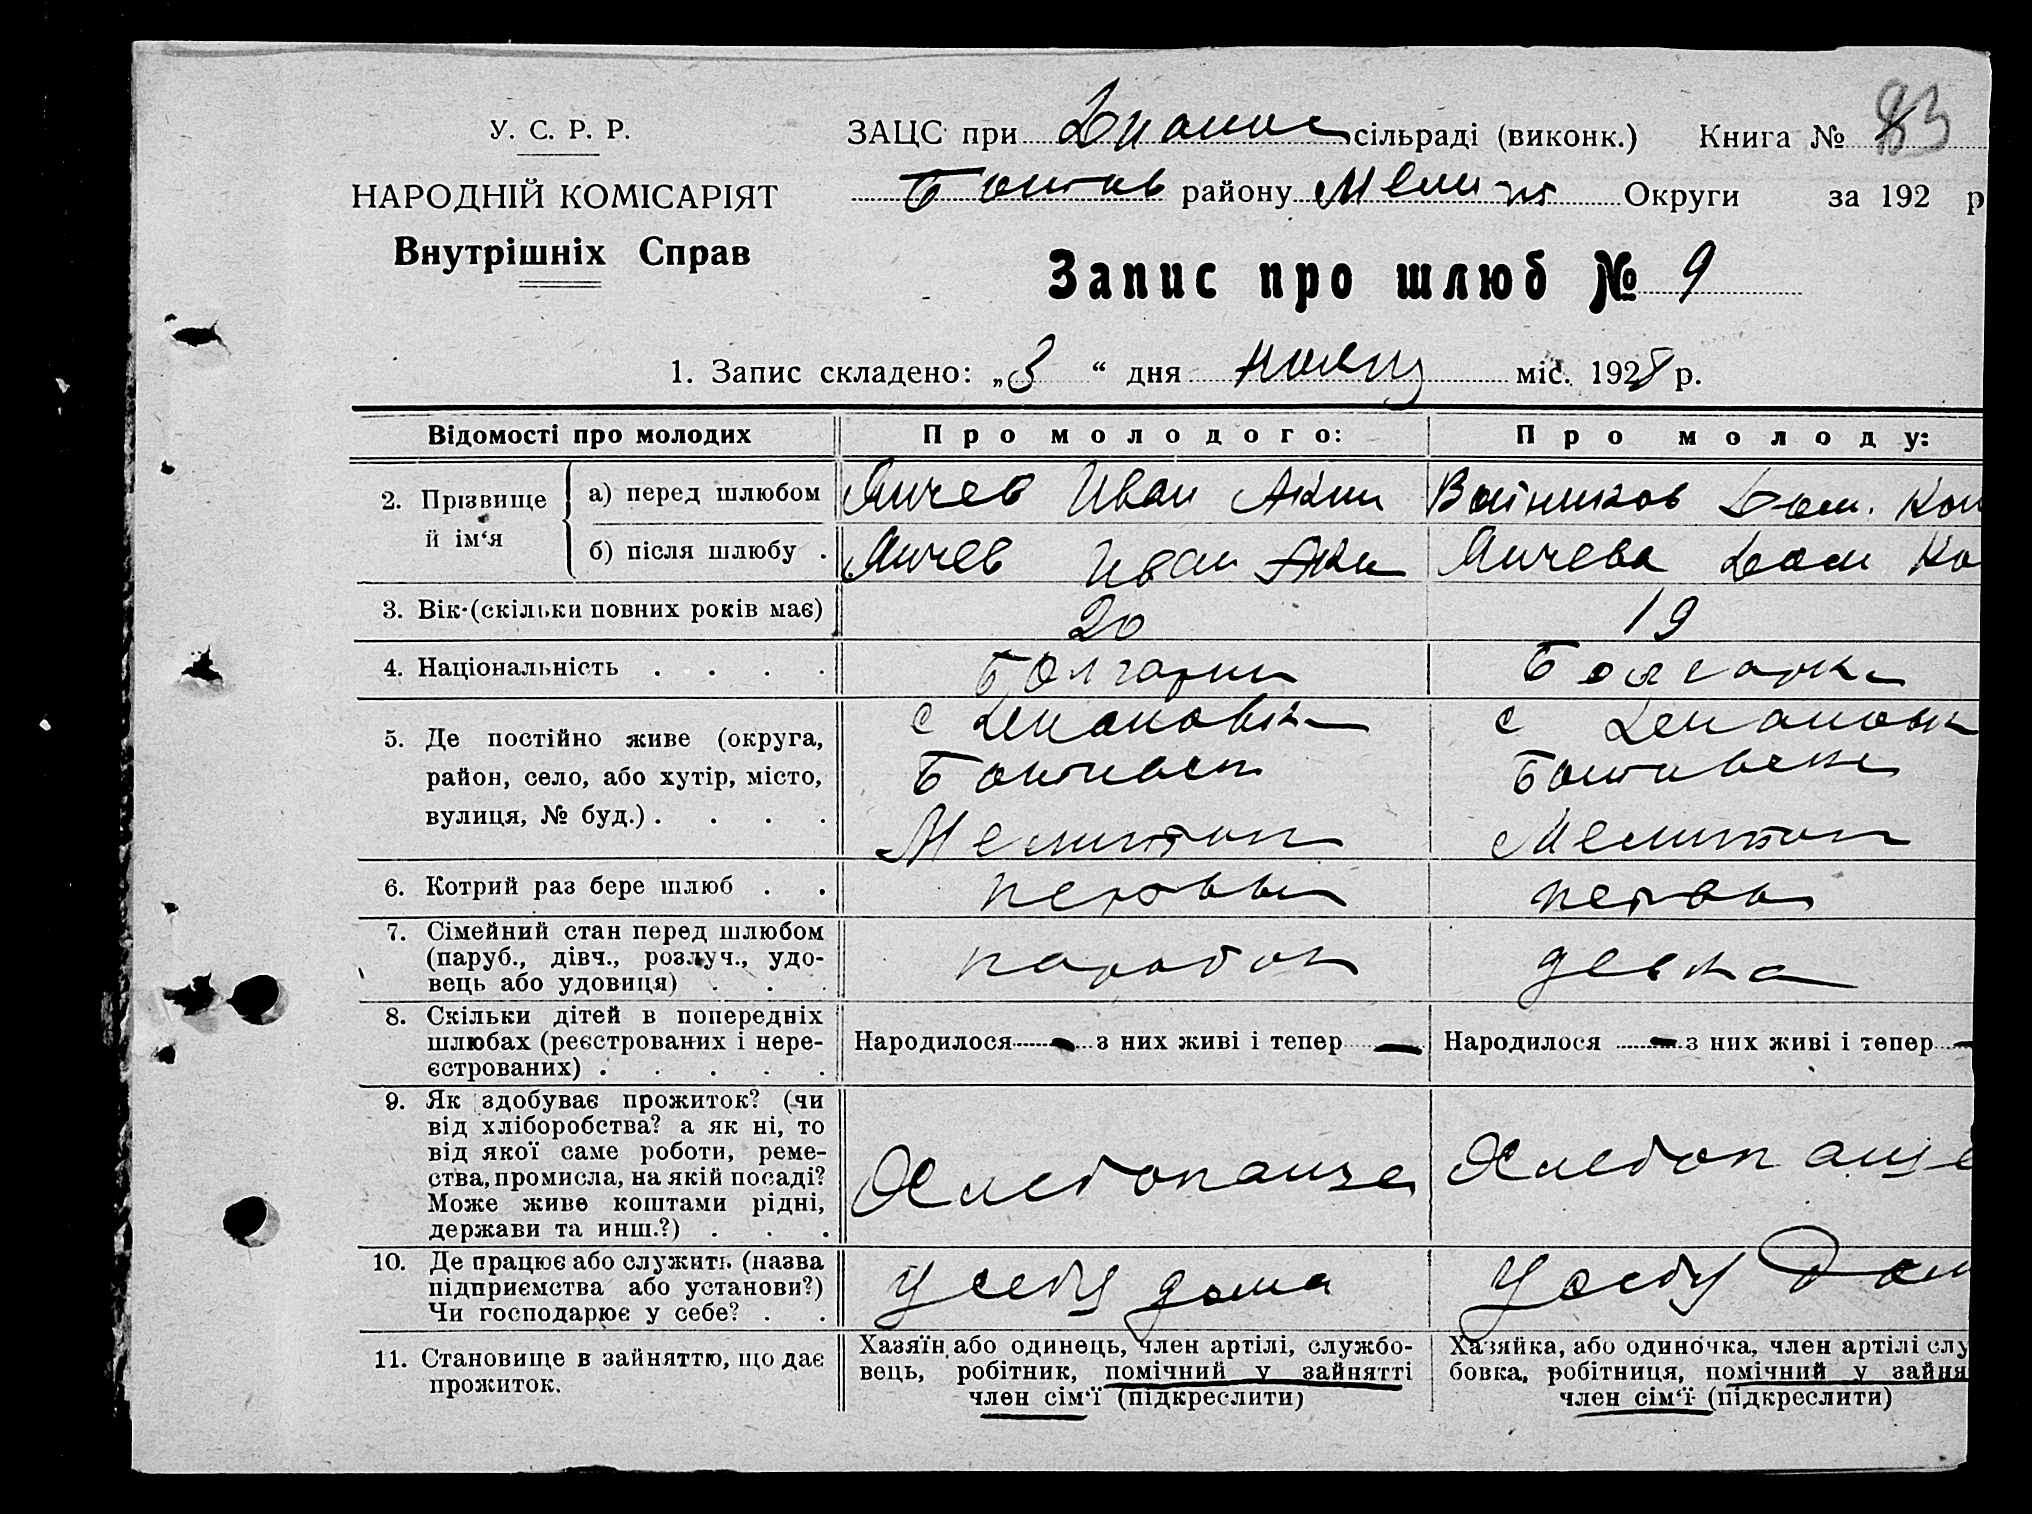 У. С. Р. Р.
НАРОДНІЙ КОМІСАРІЯТ
Внутрішніх Справ
ЗАЦС при сільраді (виконк.) Книга № 83
Ботив району Мелит Округи за 192 р
Запис про шлюб № 9
1. Запис складено: „3“ дня міс. 1928 р.
Відомості про молодих Про молодого: Про молоду:
2. Прізвище й ім‘я
а) перед шлюбом Янчев Иван Аким Войников Дом. Кон
б) після шлюбу . Янчев Иван Аки Янчева Дом Ко
3. Вік (скільки повних років має) 20 19
4. Національність . . . . Болгарин Болгарка
5. Де постійно живе (округа, район, село, або хутір, місто, вулиця, № буд.) . . . .
с Дмановка с
Ботиевск Ботиевске
Мелитоп Мелитоп
6. Котрий раз бере шлюб . . первы первы
7. Сімейний стан перед шлюбом (паруб., дівч., розлуч., удовець або удовиця) . . . паробок девка
8. Скільки дітей в попередніх шлюбах (реєстрованих і нереєстрованих) . . . . . Народилося — з них живі і тепер — Народилося — з них живі і тепер —
9. Як здобуває прожиток? (чи від хліборобства? а як ні, то від якої саме роботи, ремества, промисла, на якій посаді? Може живе коштами рідні, держави та инш.?) . . . Хлебопашец Хлебопаще
10. Де працює або служить (назва підприємства або установи?) Чи господарює у себе? . . У себя дома У себя Дом
11. Становище в зайняттю, що дає прожиток.
Хазяїн або одинець, член артілі, службовець, робітник, помічний у зайнятті член сім‘ї (підкреслити)
Хазяйка, або одиночка, член артілі слу
бовка, робітниця, помічний у зайня
член сім‘ї (підкреслити)